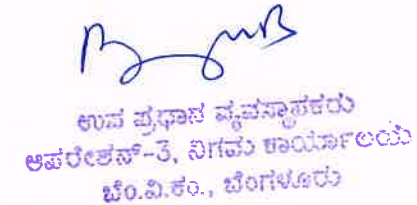 ಉಪ ಪ್ರಧಾನ ವ್ಯವಸ್ಥಾಪಕರು
ಆಪರೇಶನ್-3, ನಿಗಮ ಕಾರ್ಯಾಲಯ
ಬೆಂ.ವಿ.ಕಂ., ಬೆಂಗಳೂರು